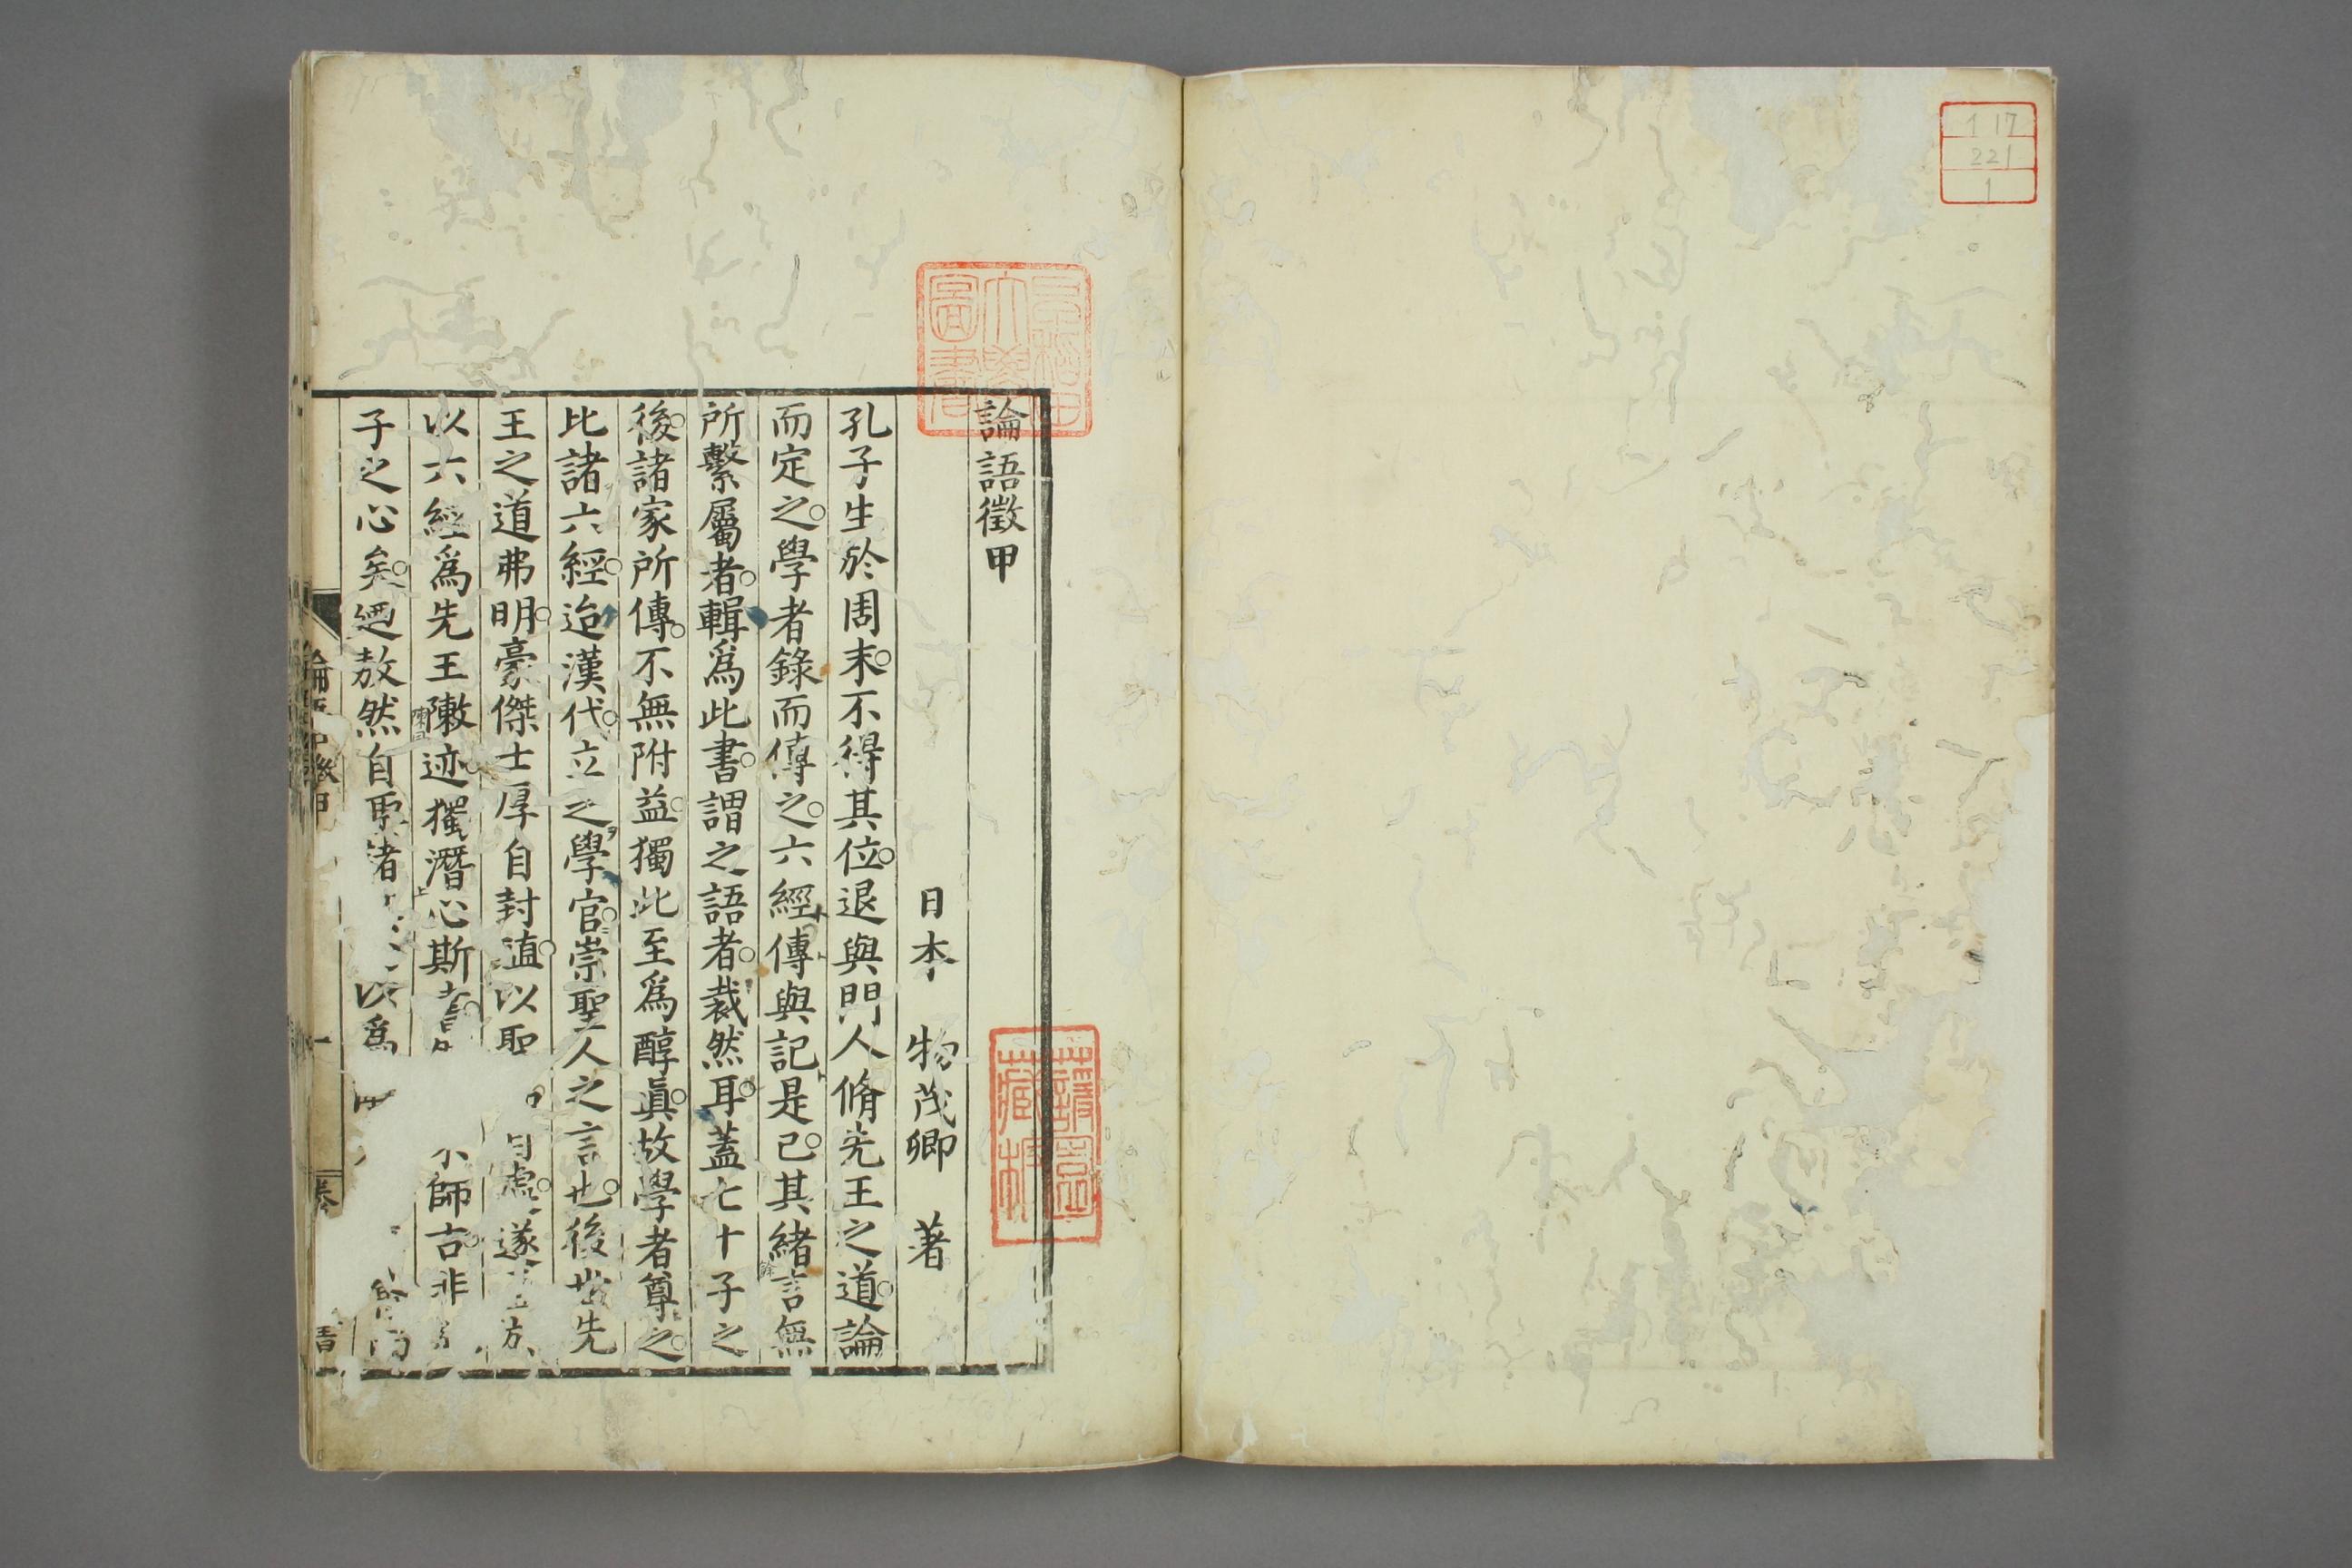 117
221
1
論語徵甲
日本 物茂卿 著
孔子生於周末。不得其位。退與門人脩先王之道。論
而定之。學者錄而傳之。六經傳與記是已。其緒言無
所繫屬者。輯爲此書。謂之語者。裁然耳。蓋七十子之
後。諸家所傳。不無附益。獨此至爲醇眞。故學者尊之。
比諸六經。迨漢代。立之學官。崇聖人之言也。後世先
王之道弗明。豪傑士厚自封殖。以聖 自處。遂
以六經爲先王陳迹。獨潛心斯書 不師古。非
子之心矣。迺敖然自取諸 以爲